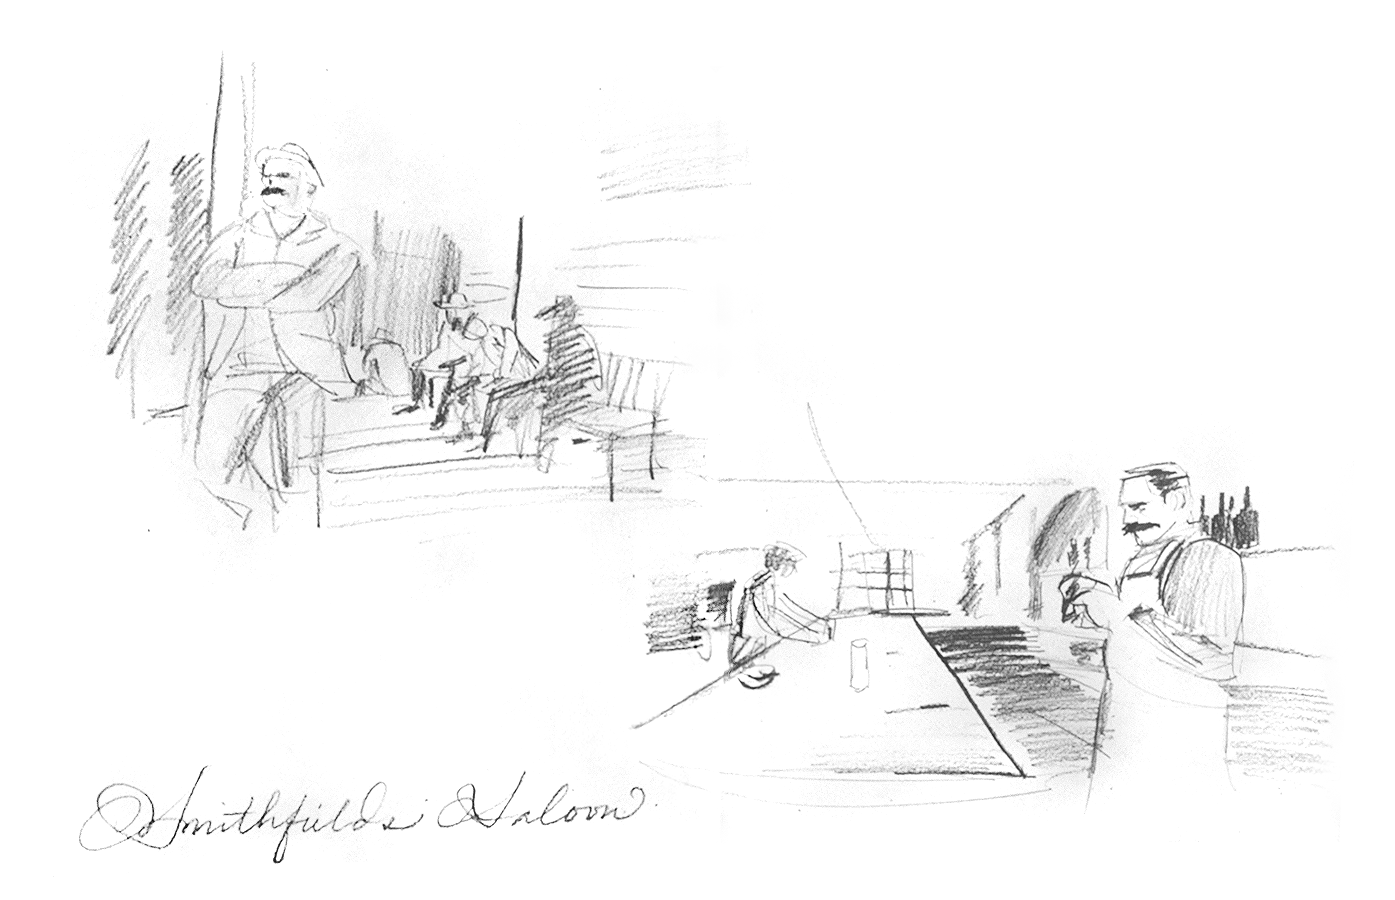 Smithfields Saloon